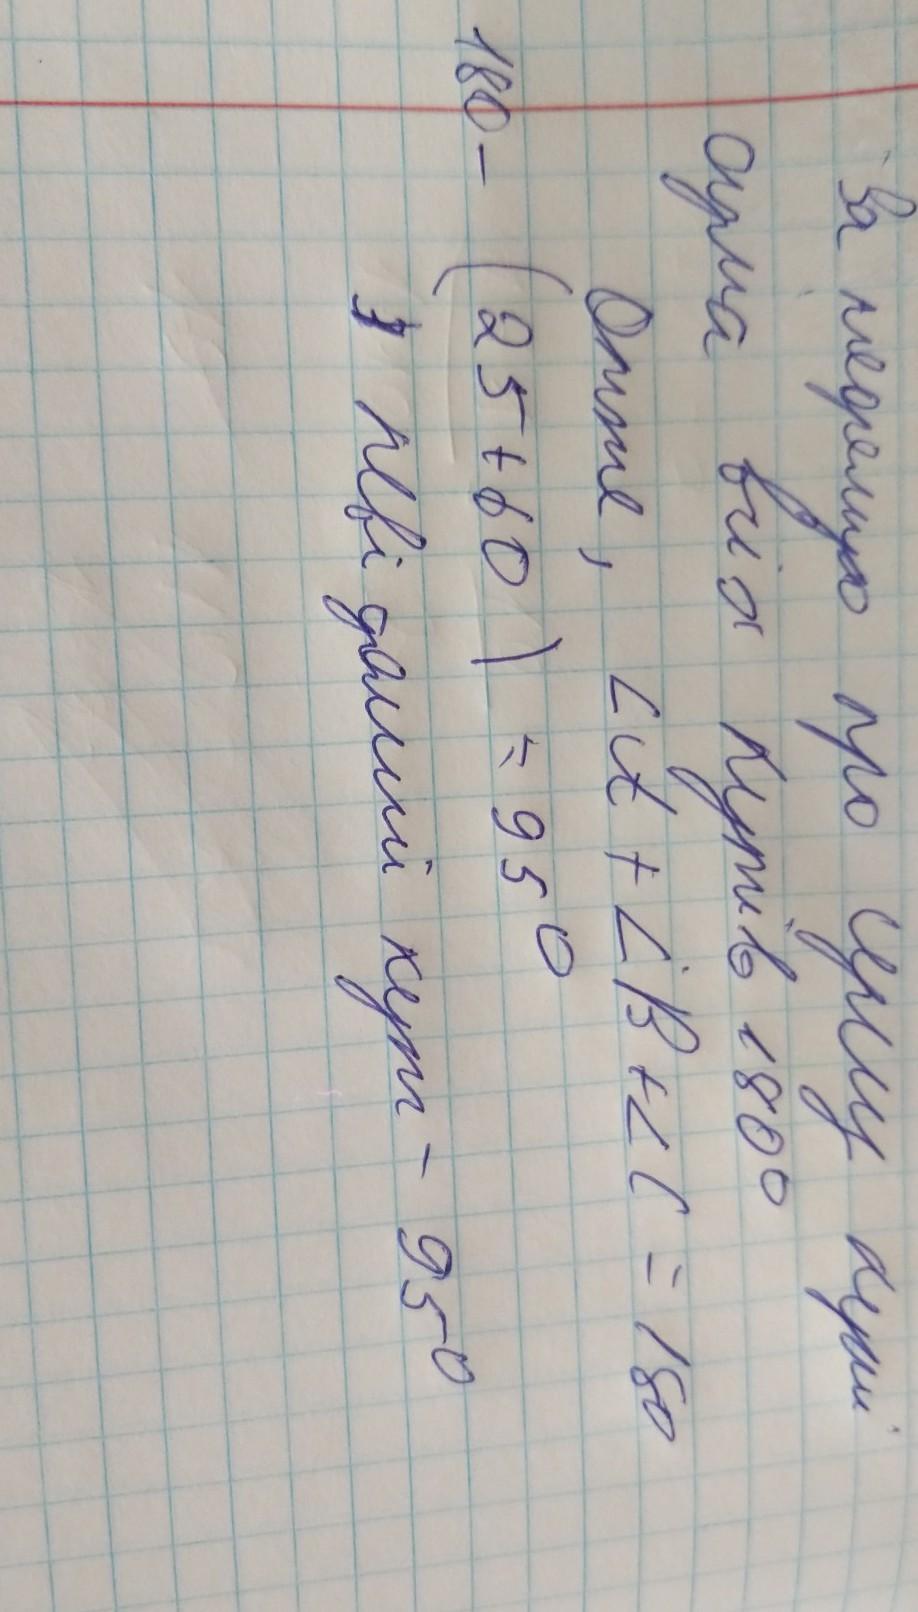 За теоремою про суму кутів
сума всіх кутів 180°
Отже, ∠A + ∠B + ∠C = 180
180 - (25 + 60) = 95°
невідомий кут - 95°